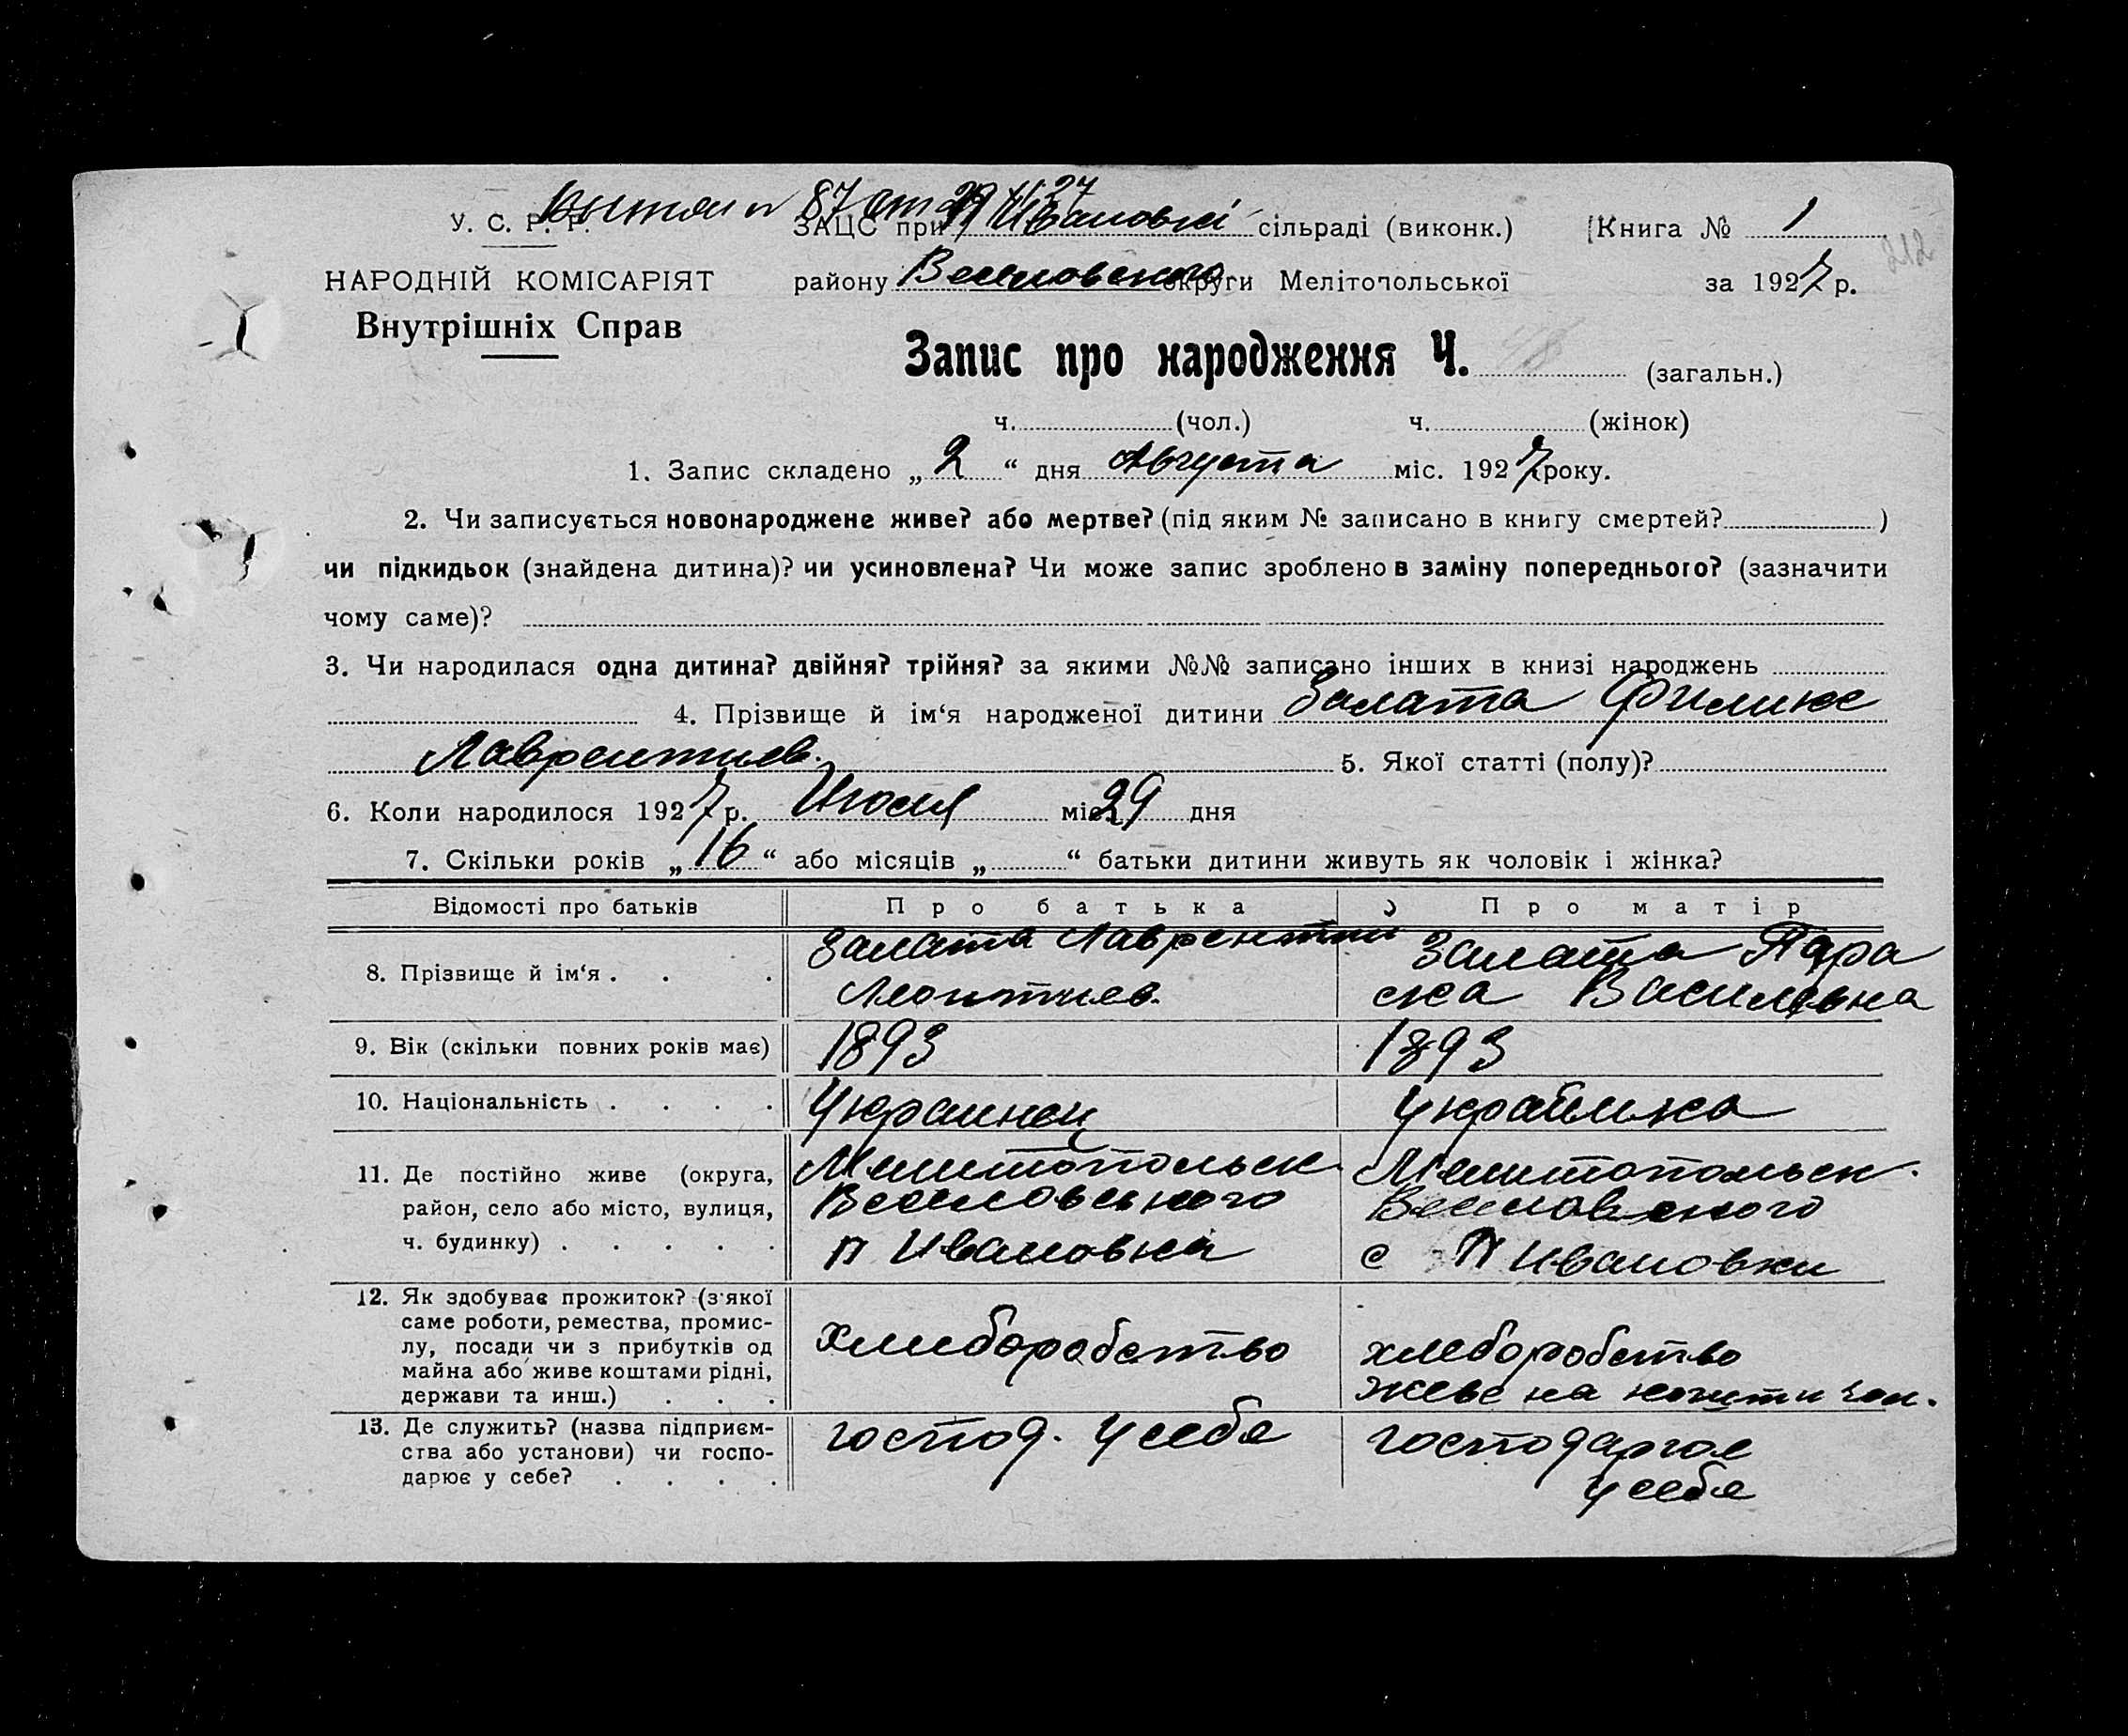 87 от 29 27
У. С. Р. Р. ЗАЦС при П Ивановкі сільраді (виконк.) Книга № 1
212
НАРОДНІЙ КОМІСАРІЯТ району Веселовского округи Мелітопольської за 1927 р.
Внутрішніх Справ
Запис про народження Ч. 48 (загальн.)
ч. (чол.) ч. (жінок)
1. Запис складено „2“ дня Августа міс. 1927 року.
2. Чи записується новонароджене живе? або мертве? (під яким № записано в книгу смертей? )
чи підкидьок (знайдена дитина)? чи усиновлена? Чи може запис зроблено в заміну попереднього? (зазначити
чому саме)?
3. Чи народилася одна дитина? двійня? трійня? за якими №№ записано інших в книзі народжень
4. Прізвище й ім‘я народженої дитини Залата Филикс
Лаврентиев. 5. Якої статті (полу)?
6. Коли народилося 1927 р. Июля міс. 29 дня
7. Скільки років „16“ або місяців „ “ батьки дитини живуть як чоловік і жінка?
Відомості про батьків Про батька Про матір
8. Прізвище й ім‘я . . . Залата Лаврентий Залата Пара
Леонтиев. ска Василевна
9. Вік (скільки повних років має) 1893 1893
10. Національність . . . . Украинец Украинка
11. Де постійно живе (округа, Мелитопольск. Мелитопольск.
район, село або місто, вулиця, Веселовського Веселовского
ч. будинку) . . . . . п Ивановка с П Ивановки
12. Як здобуває прожиток? (з якої
саме роботи, ремества, промис-
лу, посади чи з прибутків од хлиборобство хлеборобство
майна або живе коштами рідні,
держави та инш.) . . . живе на кошти чол.
13. Де служить? (назва підприєм- господ. у себе господаргое
ства або установи) чи госпо-
дарює у себе? . . . . у себе